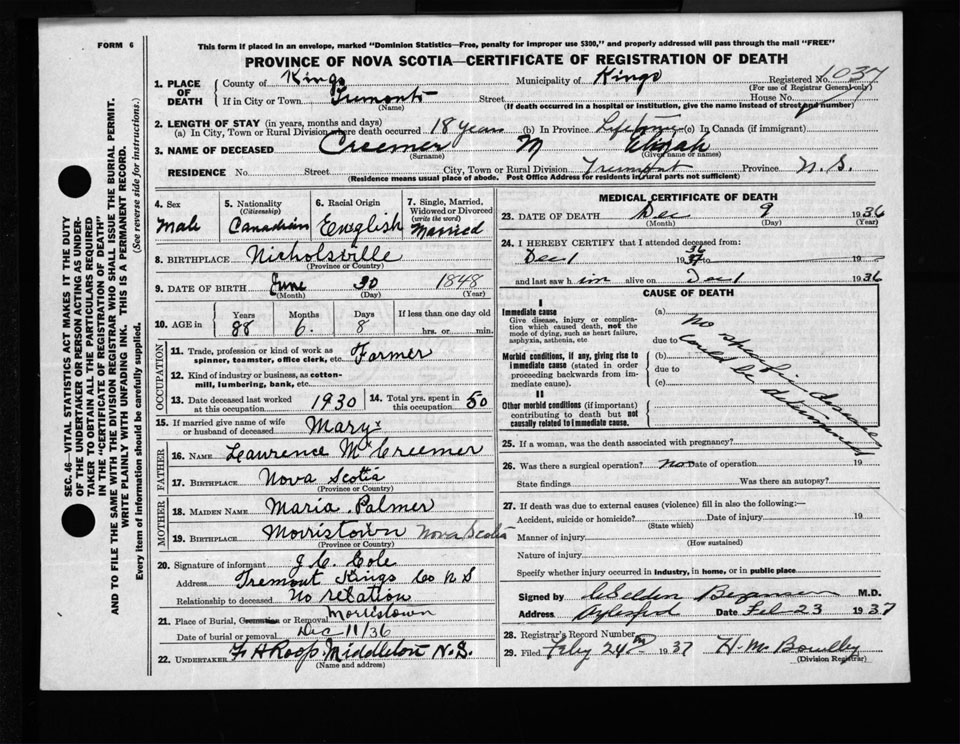 FORM 6
This form if placed in an envelope, marked "Dominion Statistics—Free, penalty for improper use $300," and properly addressed will pass through the mail "FREE"
PROVINCE OF NOVA SCOTIA—CERTIFICATE OF REGISTRATION OF DEATH
1. PLACE OF DEATH
County of Kings Municipality of Kings Registered No. 1037
(For use of Registrar General only)
If in City or Town Tremont Street House No.
(Name) (If death occurred in a hospital or institution, give the name instead of street and number)
2. LENGTH OF STAY (in years, months and days)
(a) In City, Town or Rural Division where death occurred 18 years (b) In Province Lifetime (c) In Canada (if immigrant)
3. NAME OF DECEASED Creemer M
(Surname) (Given name or names)
RESIDENCE No. Street City, Town or Rural Division Tremont Province N.S.
(Residence means usual place of abode. Post Office Address for residents in rural parts not sufficient)
4. Sex Male
5. Nationality (Citizenship) Canadian
6. Racial Origin English
7. Single, Married, Widowed or Divorced (write the word) Married
8. BIRTHPLACE Nicholsville
(Province or Country)
9. DATE OF BIRTH June 30 1848
(Month) (Day) (Year)
10. AGE in Years 88 Months 6. Days 8 If less than one day old hrs. or min.
OCCUPATION
11. Trade, profession or kind of work as spinner, teamster, office clerk, etc. Farmer
12. Kind of industry or business, as cotton-mill, lumbering, bank, etc.
13. Date deceased last worked at this occupation 1930 14. Total yrs. spent in this occupation 50
15. If married give name of wife or husband of deceased Mary
FATHER
16. NAME Lawrence Mc Creemer
17. BIRTHPLACE Nova Scotia
(Province or Country)
MOTHER
18. MAIDEN NAME Maria Palmer
19. BIRTHPLACE Morristown Nova Scotia
(Province or Country)
20. Signature of informant J. C. Cole
Address Tremont Kings Co N S
Relationship to deceased No relation
21. Place of Burial, Cremation or Removal Morristown
Date of burial or removal Dec 11/36
22. UNDERTAKER F H Roop. Middleton N.S.
(Name and address)
MEDICAL CERTIFICATE OF DEATH
23. DATE OF DEATH Dec 9 1936
(Month) (Day) (Year)
24. I HEREBY CERTIFY that I attended deceased from:
Dec 1 1937 36 to 19
and last saw h im alive on Dec 1 1936
CAUSE OF DEATH
I
Immediate cause
Give disease, injury or complication which caused death, not the mode of dying, such as heart failure, asphyxia, asthenia, etc
Morbid conditions, if any, giving rise to immediate cause (stated in order proceeding backwards from immediate cause).
II
Other morbid conditions (if important) contributing to death but not causally related to immediate cause.
(a)
due to
(b)
due to
(c)
No specific disease
could be determined
25. If a woman, was the death associated with pregnancy?
26. Was there a surgical operation? no Date of operation 19
State findings Was there an autopsy?
27. If death was due to external causes (violence) fill in also the following:—
Accident, suicide or homicide? Date of injury 19
(State which)
Manner of injury
(How sustained)
Nature of injury
Specify whether injury occurred in industry, in home, or in public place
Signed by M.D.
Address Aylesford Date Feb 23 1937
28. Registrar's Record Number
29. Filed Feby 24th 1937 H. M. Bowlby
(Division Registrar)
SEC. 46—VITAL STATISTICS ACT MAKES IT THE DUTY
OF THE UNDERTAKER OR PERSON ACTING AS UNDER-
TAKER TO OBTAIN ALL THE PARTICULARS REQUIRED
IN THE "CERTIFICATE OF REGISTRATION OF DEATH"
AND TO FILE THE SAME WITH THE DIVISION REGISTRAR WHO SHALL ISSUE THE BURIAL PERMIT.
WRITE PLAINLY WITH UNFADING INK. THIS IS A PERMANENT RECORD.
Every item of information should be carefully supplied. (See reverse side for instructions.)